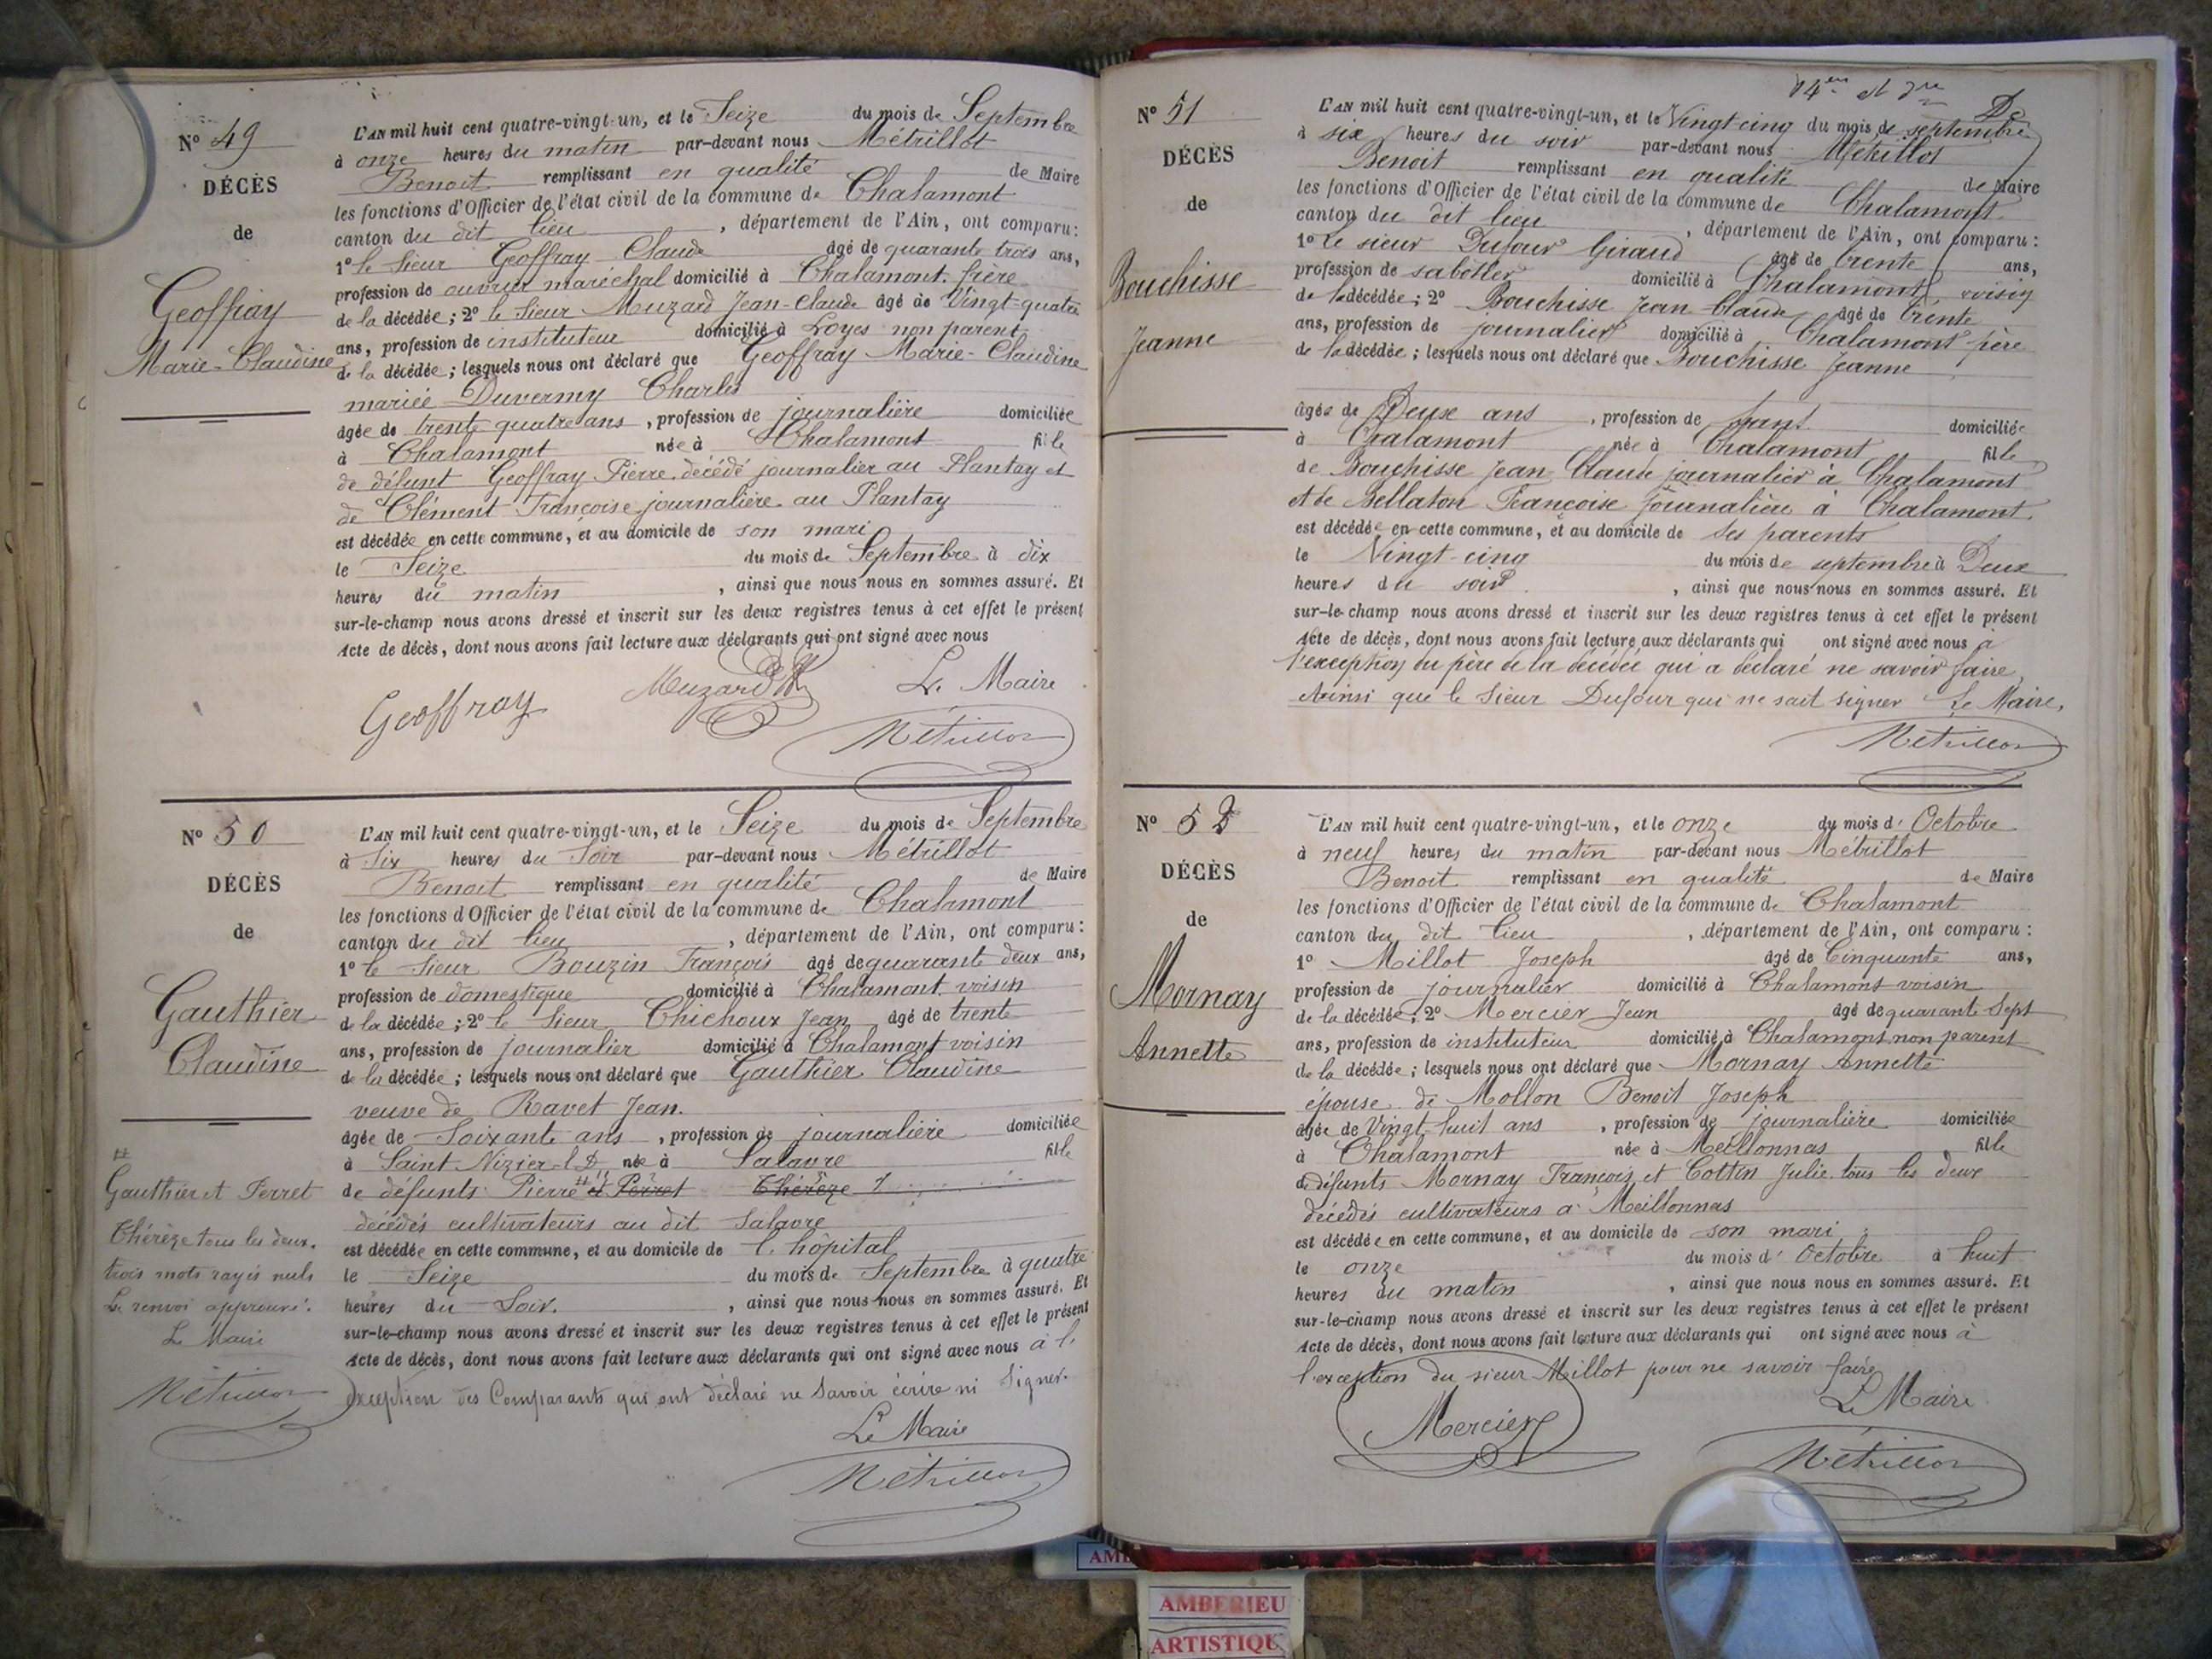 Nº 49
DÉCÈS
de
Geoffray
Marie-Claudine
L'AN mil huit cent quatre-vingt-un, et le Seize du mois de Septembre
à onze heures du matin par-devant nous Métrillot
Benoit remplissant en qualité de Maire
les fonctions d'Officier de l'état civil de la commune de Chalamont
canton du dit lieu, département de l'Ain, ont comparu:
1º le Sieur Geoffray Claude âgé de quarante trois ans,
profession de ouvrier maréchal domicilié à Chalamont. frère
de la décédée; 2º le Sieur Muzard Jean-Claude âgé de Vingt-quatre
ans, profession de instituteur domicilié à Loyes non parent
de la décédée; lesquels nous ont déclaré que Geoffray Marie-Claudine
mariée Duvermy Charles
âgée de trente quatre ans, profession de journalière domiciliée
à Chalamont née à Chalamont fille
de défunt Geoffray Pierre décédé journalier au Plantay et
de Clément Françoise journalière au Plantay
est décédée en cette commune, et au domicile de son mari
le Seize du mois de Septembre à dix
heures du matin, ainsi que nous nous en sommes assuré. Et
sur-le-champ nous avons dressé et inscrit sur les deux registres tenus à cet effet le présent
Acte de décès, dont nous avons fait lecture aux déclarants qui ont signé avec nous
Geoffray Muzard Le Maire
Métrillot
Nº 50
DÉCÈS
de
Gauthier
Claudine
L'AN mil huit cent quatre-vingt-un, et le Seize du mois de Septembre
à Six heures du Soir par-devant nous Métrillot
Benoit remplissant en qualité de Maire
les fonctions d'Officier de l'état civil de la commune de Chalamont
canton du dit lieu, département de l'Ain, ont comparu:
1º le Sieur Bouzin François âgé de quarante deux ans,
profession de domestique domicilié à Chalamont voisin
de la décédée; 2º le Sieur Chichoux Jean âgé de trente
ans, profession de journalier domicilié à Chalamont voisin
de la décédée; lesquels nous ont déclaré que Gauthier Claudine
veuve de Ravet Jean.
âgée de Soixante ans, profession de journalière domiciliée
à Saint Nizier-l-D née à Salavre fille
de défunts Pierre # et Perret Thérèze
décédés cultivateurs au dit Salavre
est décédée en cette commune, et au domicile de l'hôpital
le Seize du mois de Septembre à quatre
heures du Soir, ainsi que nous nous en sommes assuré. Et
sur-le-champ nous avons dressé et inscrit sur les deux registres tenus à cet effet le présent
Acte de décès, dont nous avons fait lecture aux déclarants qui ont signé avec nous à l'
exception des Comparants qui ont déclaré ne Savoir écrire ni Signer.
Le Maire
Métrillot
#
Gauthier et Perret
Thérèze tous les deux.
trois mots rayés nuls
Le renvoi approuvé.
Le Maire
Métrillot
Nº 51
DÉCÈS
de
Bouchisse
Jeanne
L'AN mil huit cent quatre-vingt-un, et le Vingt-cinq du mois de septembre
à six heures du soir par-devant nous Métrillot
Benoit remplissant en qualité de Maire
les fonctions d'Officier de l'état civil de la commune de Chalamont
canton du dit lieu, département de l'Ain, ont comparu:
1º le sieur Dufour Giraud âgé de trente ans,
profession de sabotier domicilié à Chalamont, voisin
de la décédée; 2º Bouchisse Jean Claude âgé de trente
ans, profession de journalier domicilié à Chalamont père
de la décédée; lesquels nous ont déclaré que Bouchisse Jeanne
âgée de Deux ans, profession de domiciliée
à Chalamont née à Chalamont fille
de Bouchisse Jean Claude journalier à Chalamont
et de Bellaton Françoise journalière à Chalamont.
est décédée en cette commune, et au domicile de ses parents
le Vingt-cinq du mois de septembre à Deux
heures du soir, ainsi que nous nous en sommes assuré. Et
sur-le-champ nous avons dressé et inscrit sur les deux registres tenus à cet effet le présent
Acte de décès, dont nous avons fait lecture aux déclarants qui ont signé avec nous à
l'exception du père de la décédée qui a déclaré ne savoir faire,
Ainsi que le Sieur Dufour qui ne sait signer Le Maire,
Métrillot
Nº 52
DÉCÈS
de
Mornay
Annette
L'AN mil huit cent quatre-vingt-un, et le onze du mois d'Octobre
à neuf heures du matin par-devant nous Métrillot
Benoit remplissant en qualité de Maire
les fonctions d'Officier de l'état civil de la commune de Chalamont
canton du dit lieu, département de l'Ain, ont comparu:
1º Millot Joseph âgé de Cinquante ans,
profession de journalier domicilié à Chalamont voisin
de la décédée; 2º Mercier Jean âgé de quarante Sept
ans, profession de instituteur domicilié à Chalamont non parent
de la décédée; lesquels nous ont déclaré que Mornay Annette
épouse de Mollon Benoit Joseph
âgée de Vingt huit ans, profession de journalière domiciliée
à Chalamont née à Meillonnas fille
de défunts Mornay François et Cottin Julie tous les deux
décédés cultivateurs à Meillonnas
est décédée en cette commune, et au domicile de son mari
le onze du mois d'Octobre à huit
heures du matin, ainsi que nous nous en sommes assuré. Et
sur-le-champ nous avons dressé et inscrit sur les deux registres tenus à cet effet le présent
Acte de décès, dont nous avons fait lecture aux déclarants qui ont signé avec nous à
l'exception du sieur Millot pour ne savoir faire
Le Maire
Mercier Métrillot
AMBERIEU
ARTISTIQU